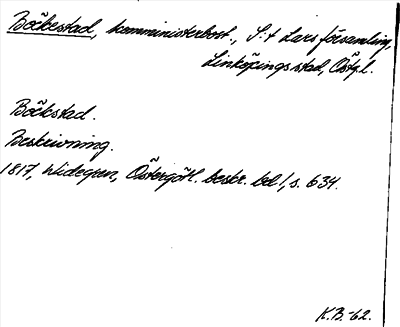 Böckestad, komministerbost., S:t Lars församling,
Linköpings stad, Östg.l.
Böckstad.
Beskrivning.
1817, Widegren, Östergötl. beskr. bd 1, s. 634.
K.B.-62.